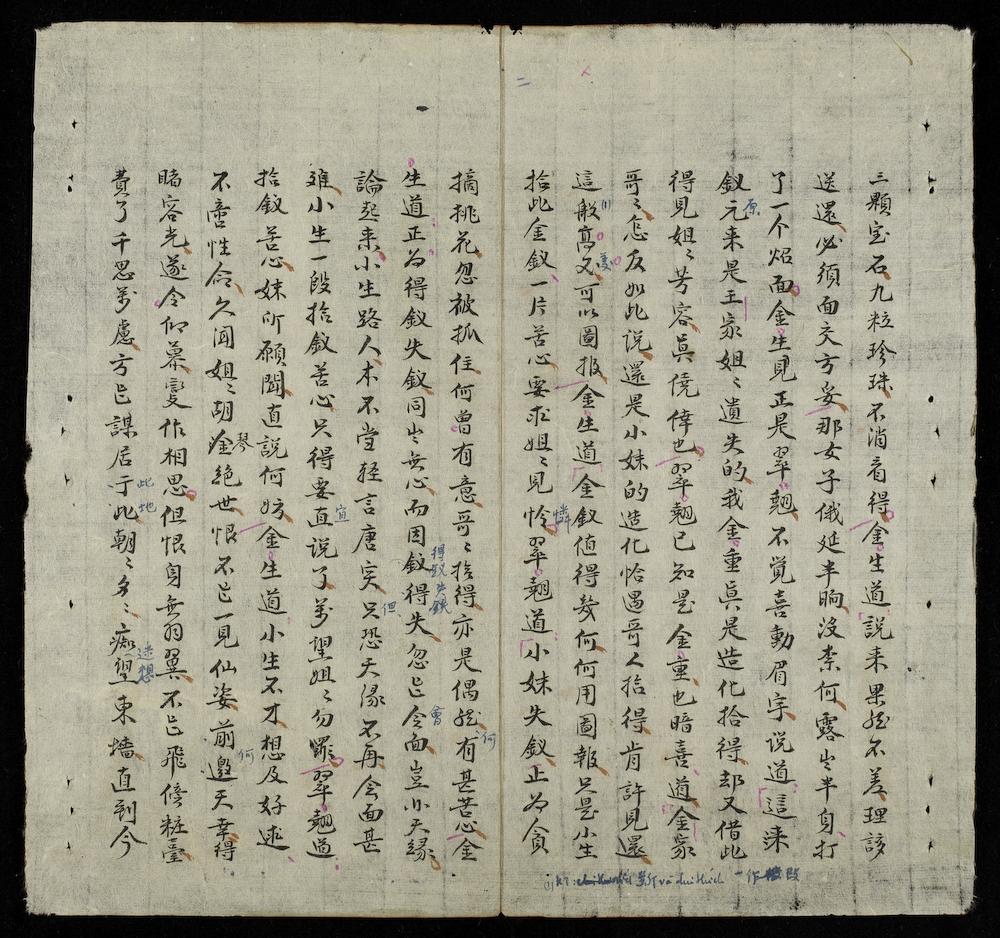 三顆宝石九粒珍珠不消看得金生道說来果然不差理該
送還必須面交方妥那女子俄延半晌沒柰何露出半身打
了一个炤面金生見正是翠翹不覚喜動眉宇说道這釆
釵元来是王家姐〻遺失的我金重眞是造化拾得却又借此
得見姐〻芳容眞僥倖也翠翹已知是金重也暗喜道金家
哥〻怎反如此说還是小妹的造化恰遇哥人拾得肯許見還
這般高义可以圖报金生道金釵值得幾何何用圖報只是小生
拾此金釵一片苦心要求姐〻見怜翠翹道小妹失釵正为貪
摘挑花忽被抓住何曾有意哥〻拾得亦是偶然有甚苦心金
生道正为得釵失釵同出無心而因釵得失忽𠃵会面豈小天緣
論起来小生路人本不当輕言唐突只恐天缘不再会面甚
难小生一段拾釵苦心只得要直説了萬望姐〻勿罪翠翹道
拾釵苦心妹所願聞直説何妨金生道小生不才想及好逑
不啻性命久闻姐〻胡金絶世恨不𠃵一見仙姿前邀天幸得
睹容光遂令仰慕変作相思但恨身無羽翼不𠃵飛傍粧臺
費了千思萬慮方𠃵謀居于此朝〻夕〻痴望東墻直到今
原
義
憐
何
得釵失釵
會
但
宜
琴
何
此地
迷想
二
(1)
一作
改